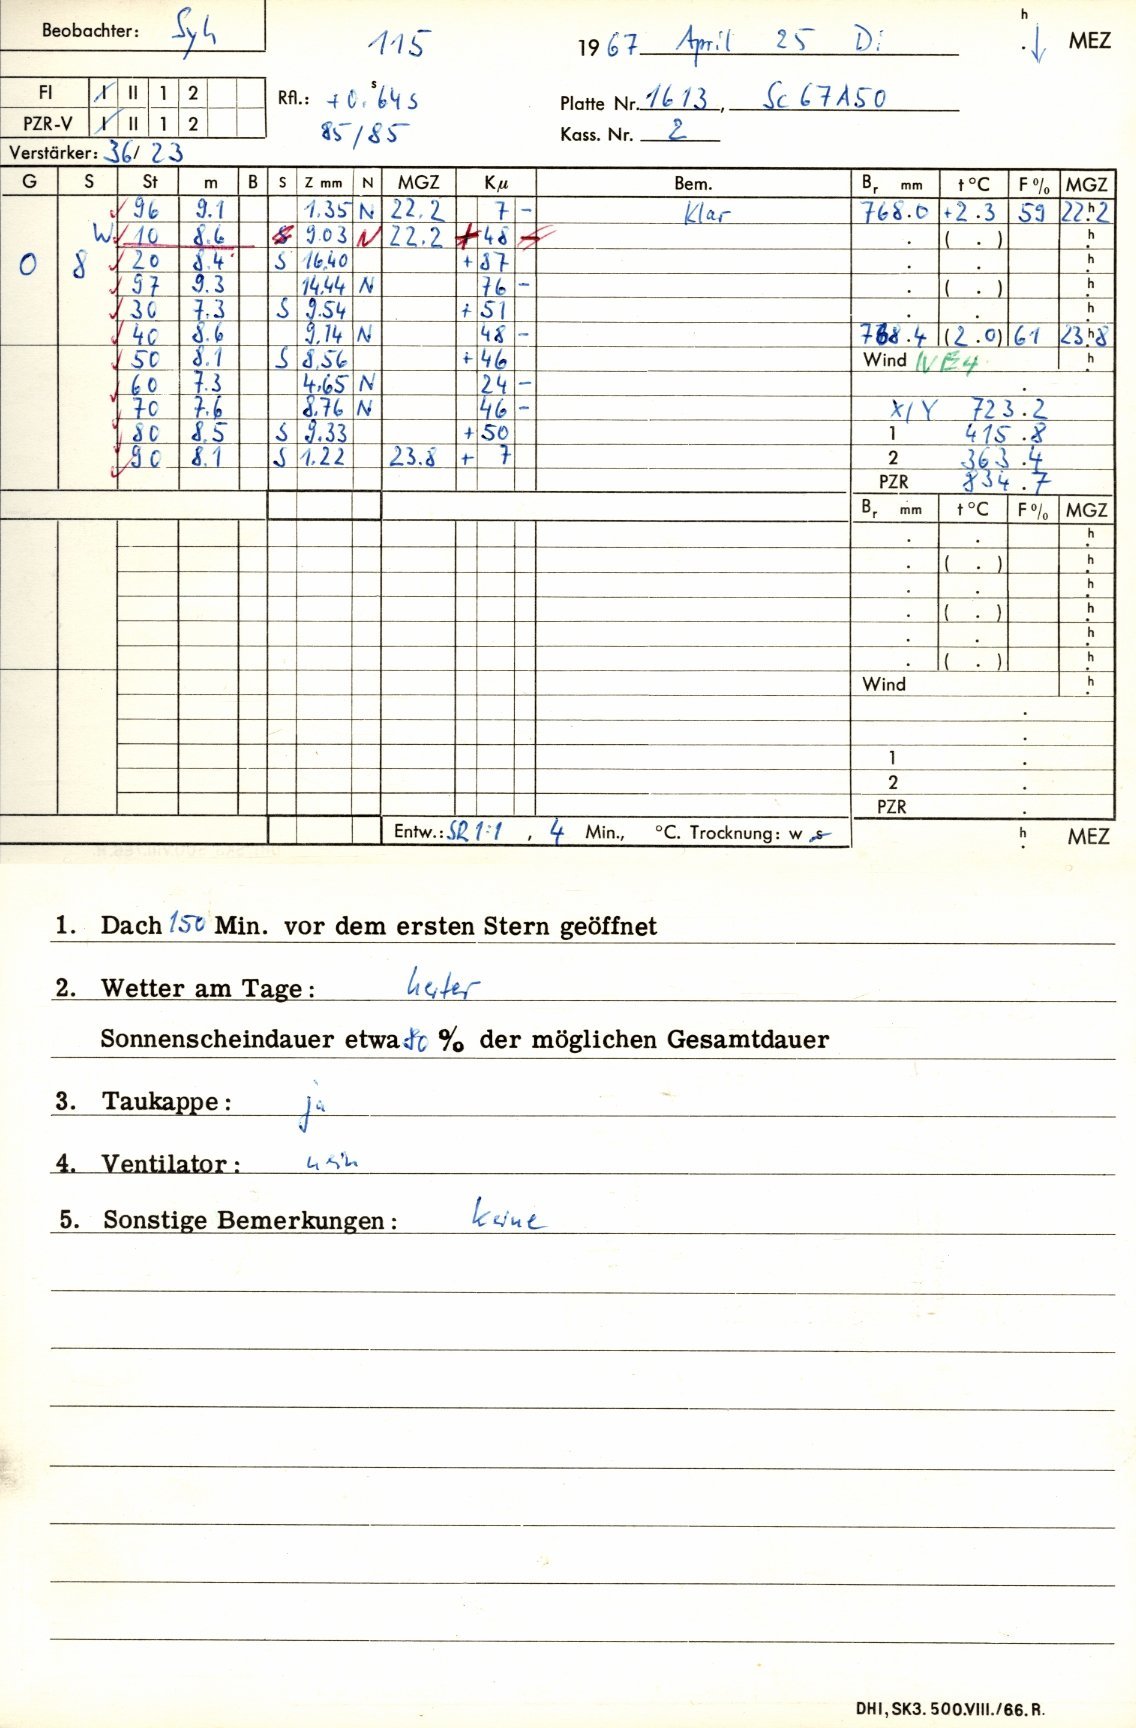 Beobachter: Syh
115
1967 April 25 Di
h
. ↓ MEZ
FI I II 1 2
PZR-V I II 1 2
Rfl.: +0.ˢ64s
85/85
Platte Nr. 1613, Sc 67A50
Kass. Nr. 2
Verstärker: 36/23
G S St m B S Z mm N MGZ Kμ Bem. Br mm t °C F % MGZ
96 9.1 1.35 N 22.2 7 - Klar 768.0 +2.3 59 22ʰ.2
W 10 8.6 S 9.03 N 22.2 + 48 - . ( . ) h.
0 8 20 8.4 S 16.40 +87 . . h.
97 9.3 14.44 N 76 - . ( . ) h.
30 7.3 S 9.54 +51 . . h.
40 8.6 9.14 N 48 - 768.4 (2.0) 61 23ʰ.8
50 8.1 S 8.56 +46 Wind NE4 h.
60 7.3 4.65 N 24 - .
70 7.6 8.76 N 46 - X/Y 723.2
80 8.5 S 9.33 +50 1 415.8
90 8.1 S 1.22 23.8 + 7 2 363.4
PZR 834.7
Br mm t °C F % MGZ
. . h.
. ( . ) h.
. . h.
. ( . ) h.
. . h.
. ( . ) h.
Wind h.
.
.
1 .
2 .
PZR .
Entw.: SR 1:1 , 4 Min., °C. Trocknung: w s
h. MEZ
1. Dach 150 Min. vor dem ersten Stern geöffnet
2. Wetter am Tage: heiter
Sonnenscheindauer etwa 80 % der möglichen Gesamtdauer
3. Taukappe: ja
4. Ventilator: nein
5. Sonstige Bemerkungen: keine
DHI, SK3. 500.VIII./66. R.